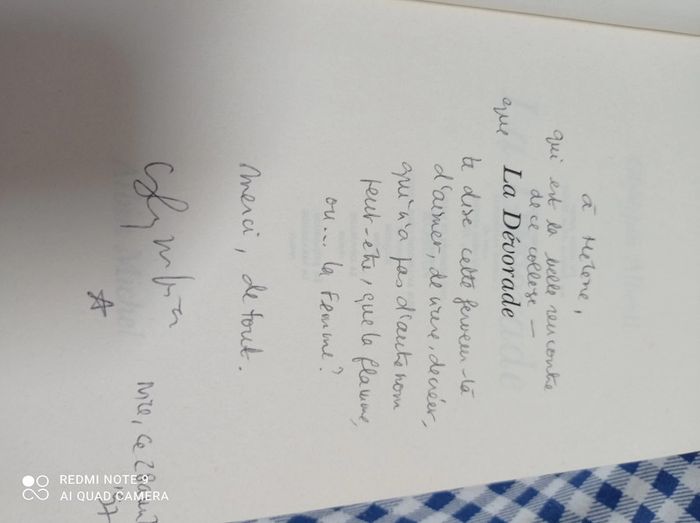 à Hélène,
qui est la belle rencontre
de ce colloque —
que La Dévorade
te dise cette ferveur-là
d'aimer, de vivre, de créer,
qui n'a pas d'autre nom
peut-être, que la flamme,
ou... la Femme?
Merci, de tout.
Nice, ce
REDMI NOTE 9
AI QUAD CAMERA